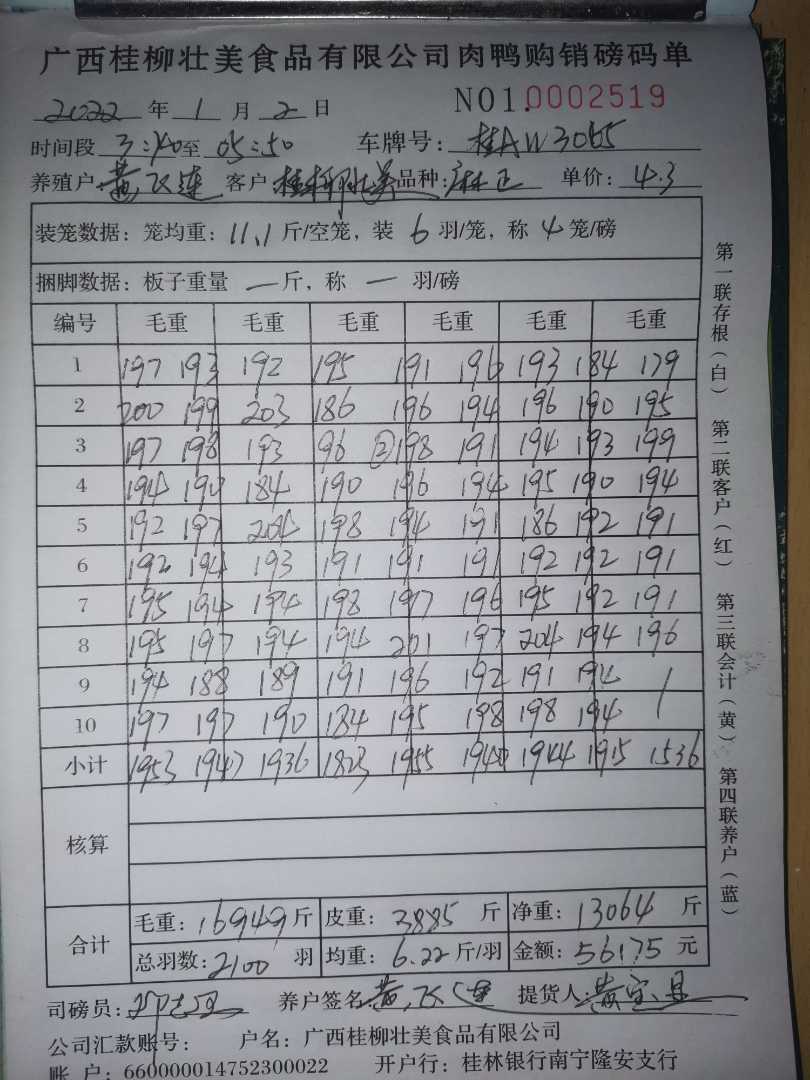 广西桂柳壮美食品有限公司肉鸭购销磅码单
2022 年 1 月 2 日 NO1.0002519
时间段 3:40至 05:50 车牌号: 桂AW3065
养殖户 黄飞连 客户 桂柳壮美 品种: 麻正 单价: 4.3
装笼数据: 笼均重: 11.1 斤/空笼, 装 6 羽/笼, 称 4 笼/磅
捆脚数据: 板子重量 — 斤, 称 — 羽/磅
编号 毛重 毛重 毛重 毛重 毛重 毛重
1 197 193 192 195 191 196 193 184 179
2 200 199 203 186 196 194 196 190 195
3 197 198 193 96 ② 198 191 194 193 199
4 194 190 184 190 196 194 195 190 194
5 192 197 204 198 194 191 186 192 191
6 192 194 193 191 191 191 192 192 191
7 195 194 194 198 197 196 195 192 191
8 195 197 194 194 201 197 204 194 196
9 194 188 189 191 196 192 191 194 /
10 197 197 190 184 195 198 198 194
小计 1953 1947 1936 1823 1955 1940 1944 1915 1536
核算
合计
毛重: 16949 斤 皮重: 3885 斤 净重: 13064 斤
总羽数: 2100 羽 均重: 6.22 斤/羽 金额: 56175 元
司磅员: 养户签名 黄飞连 提货人: 黄宝
公司汇款账号: 户名: 广西桂柳壮美食品有限公司
账 户: 660000014752300022 开户行: 桂林银行南宁隆安支行
第一联存根(白) 第二联客户(红) 第三联会计(黄) 第四联养户(蓝)